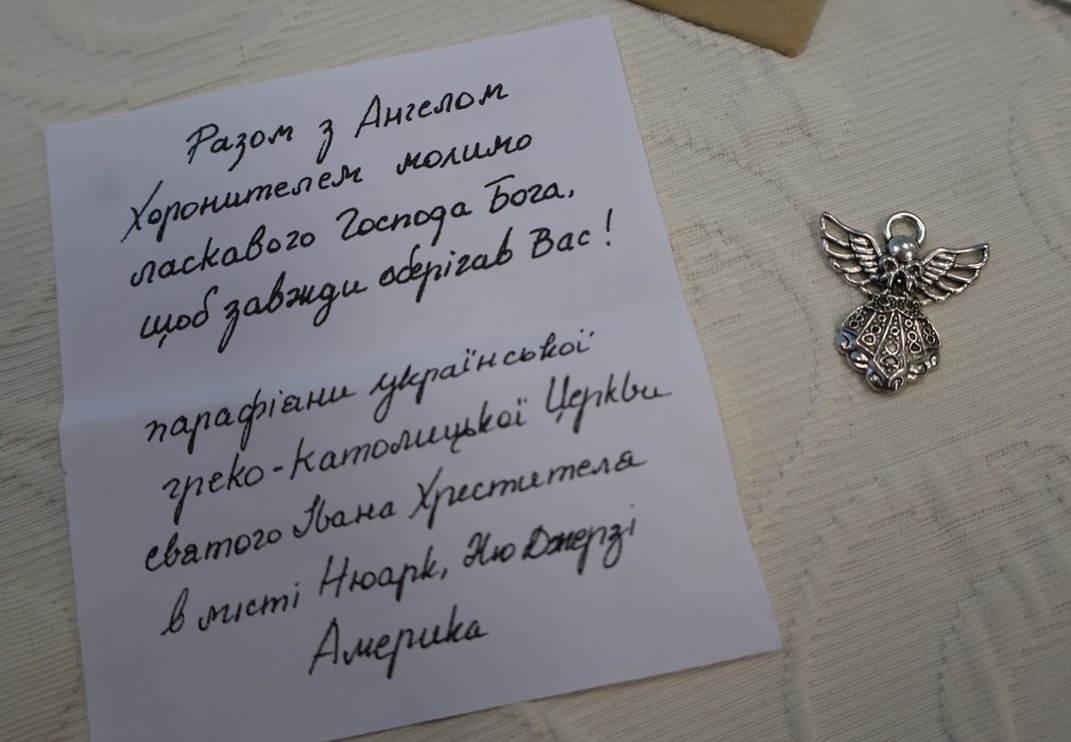 Разом з Ангелом
Хоронителем молимо
ласкавого Господа Бога,
щоб завжди оберігав Вас!
парафіяни української
греко-католицької Церкви
святого Івана Хрестителя
в місті Нюарк, Ню Джерзі
Америка